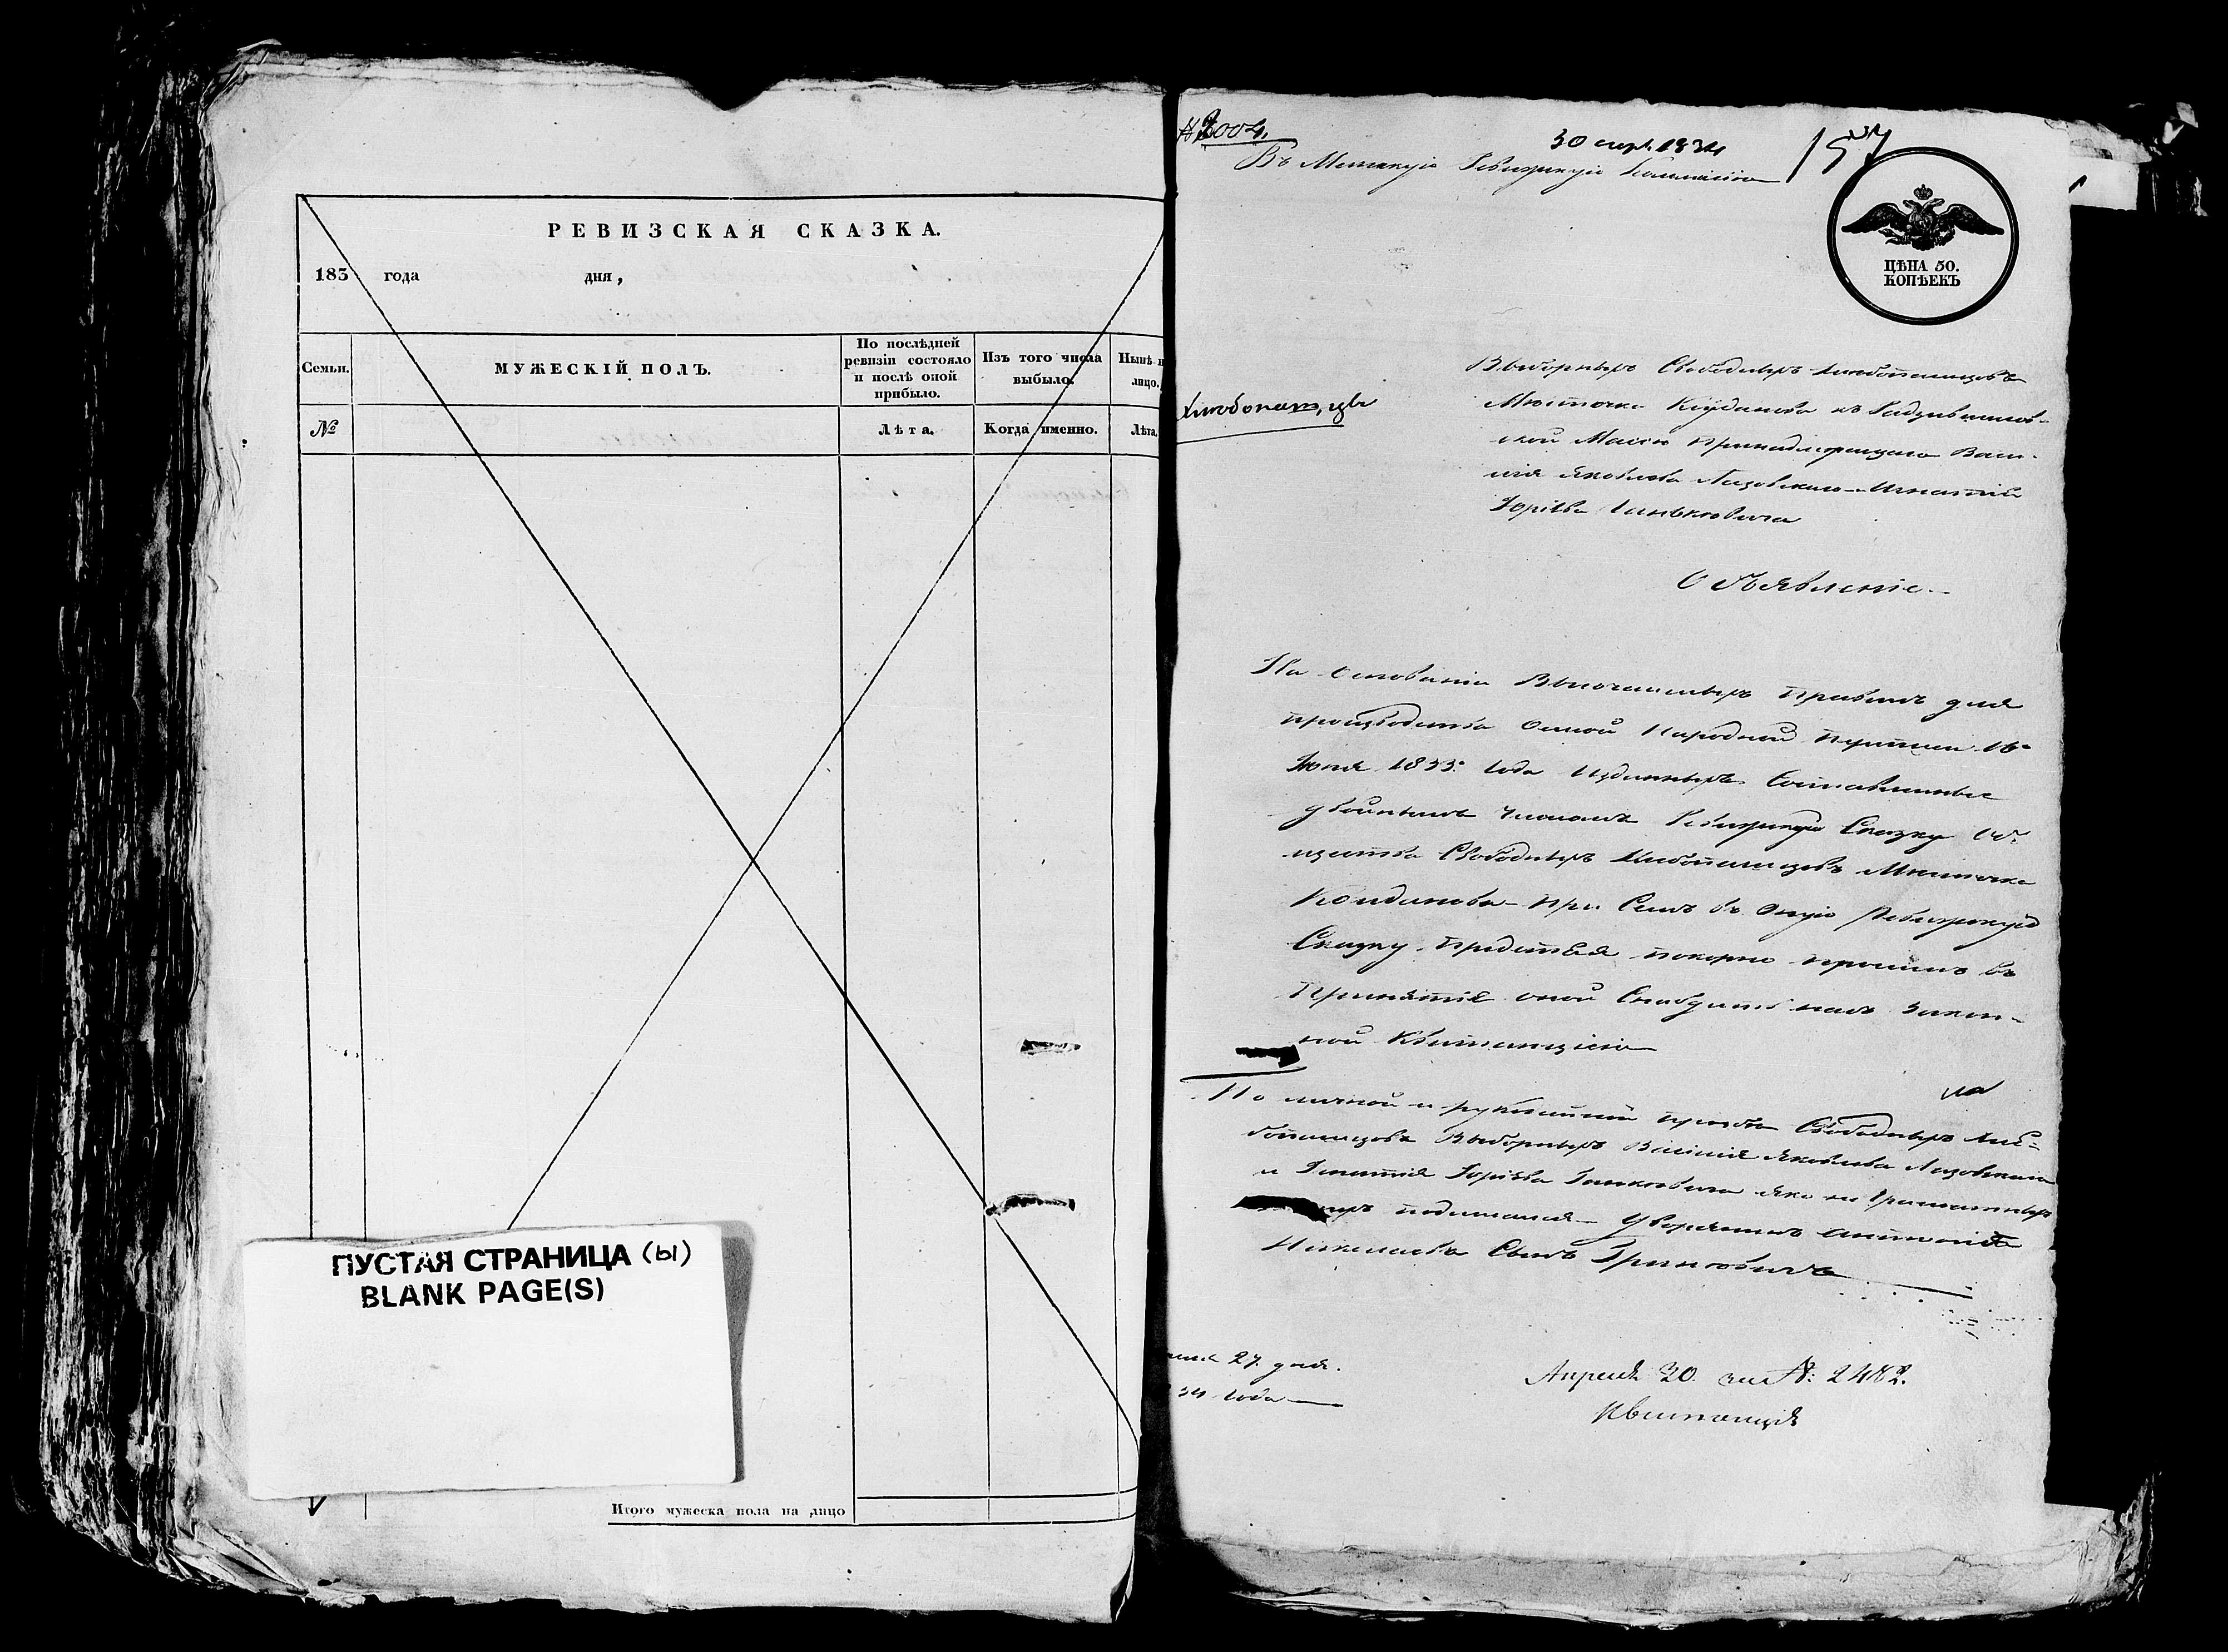 РЕВИЗСКАЯ СКАЗКА.
183 года дня,
Семьи.
МУЖЕСКІЙ ПОЛЪ.
По послѣдней ревизіи состояло и послѣ оной прибыло.
Изъ того числа выбыло.
Нынѣ н
лицо.
№
Лѣта.
Когда именно.
Лѣта.
ПУСТАЯ СТРАНИЦА (Ы)
BLANK PAGE(S)
Итого мужеска пола на лицо
30 апр. 1834
Въ Минскую Ревизскую Коммисію
ЦѢНА 50.
КОПѢЕКЪ
Выборныхъ Свободныхъ Хлебопашцовъ
Мѣстечка Койданова къ Радзивиловъ-
ской Массѣ принадлежащаго Васи-
лія Яковлева Лазовскаго и Игнатія
Объявленіе.
На Основаніи Высочайшихъ Правилъ для
производства Осмой Народной переписи 16го
Іюня 1833го Года изданныхъ Составивши
двойнымъ числомъ Ревизскую Сказку Об-
щества Свободныхъ Хлебопашцовъ Мѣстечка
Койданова при Семъ въ Оную Ревизскую
Сказку представя покорно просимъ въ
Принятіе оной Снабдить насъ Закон-
ной Квитанціею
По личной и рукодайной прозбы Свободныхъ Хлѣ-
бопашцовъ Выборныхъ Василія Яковлева Лазовскаго
и Игнатія яко не Грамотныхъ
подписался Дворянинъ Антоній
Николаевъ Сынъ Гриневичъ
27 дня.
34 года
Апреля 30. за №: 2482.
Квитанція